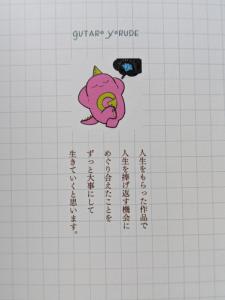 GUTARO YORUDE
人生をもらった作品で
人生を捧げ返す機会に
めぐり合えたことを
ずっと大事にして
生きていくと思います。